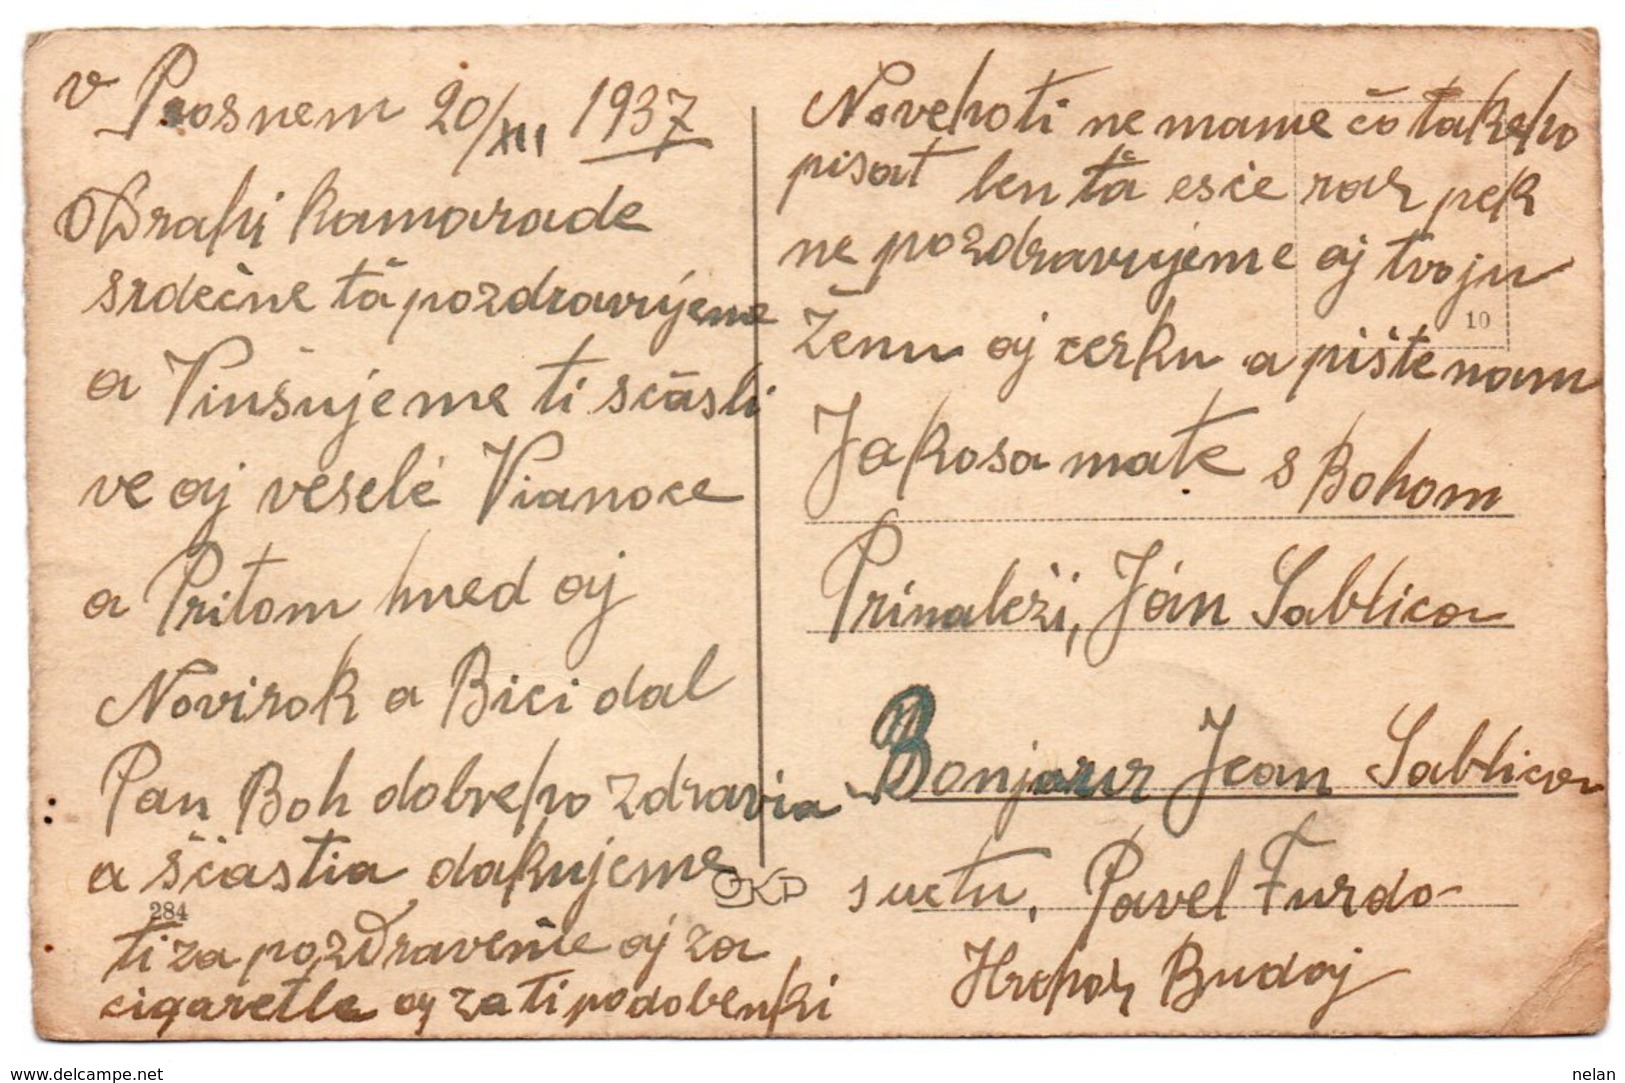 v Prosnem 20/XII 1937
Drahi kamarade
srdečne ťa pozdravujeme
a Vinšujeme ti sčasli
ve aj veselé Vianoce
a Pritom hned aj
Novirok a Bici dal
Pan Boh dobreho zdravia
a ščastia dakujeme
284
ti za pozdravenie aj za
cigaretle aj za ti podobenki
JKP
Novehoti nemame čo takeho
pisať len ťa esče raz pek
ne pozdravujeme aj tvoju
Ženu aj cerku a pište nam
10
Jakosa mate s Bohom
Prinaleži, Ján Sablica
Bonjour Jean Sablica
suctu, Pavel Furdo-
Hrehor Budaj
www.delcampe.net
nelan